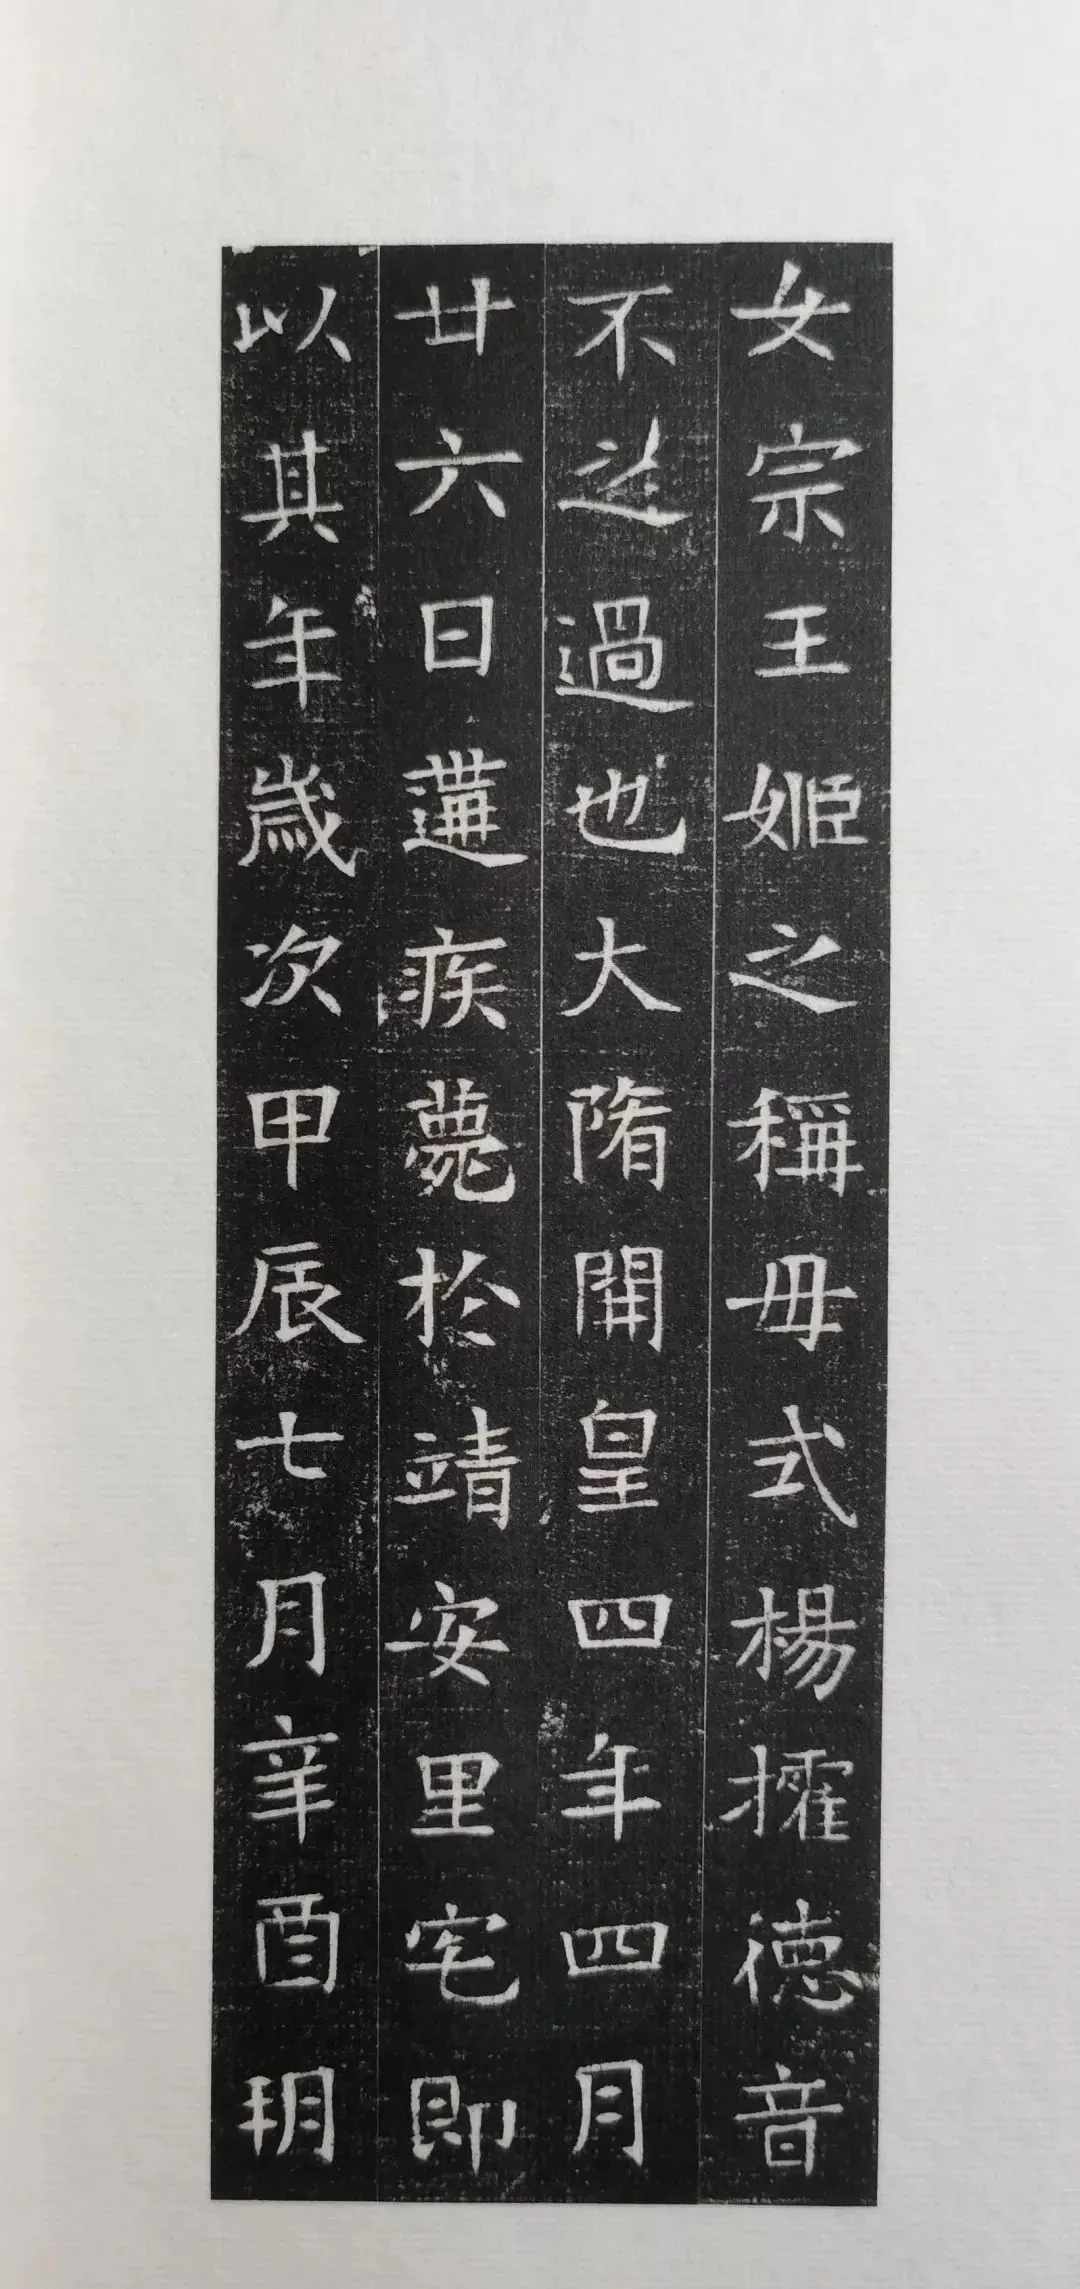 女宗王姬之稱母式楊搉德音
不之過也大隋開皇四年四月
廿六日遘疾薨於靖安里宅即
以其年歲次甲辰七月辛酉朔